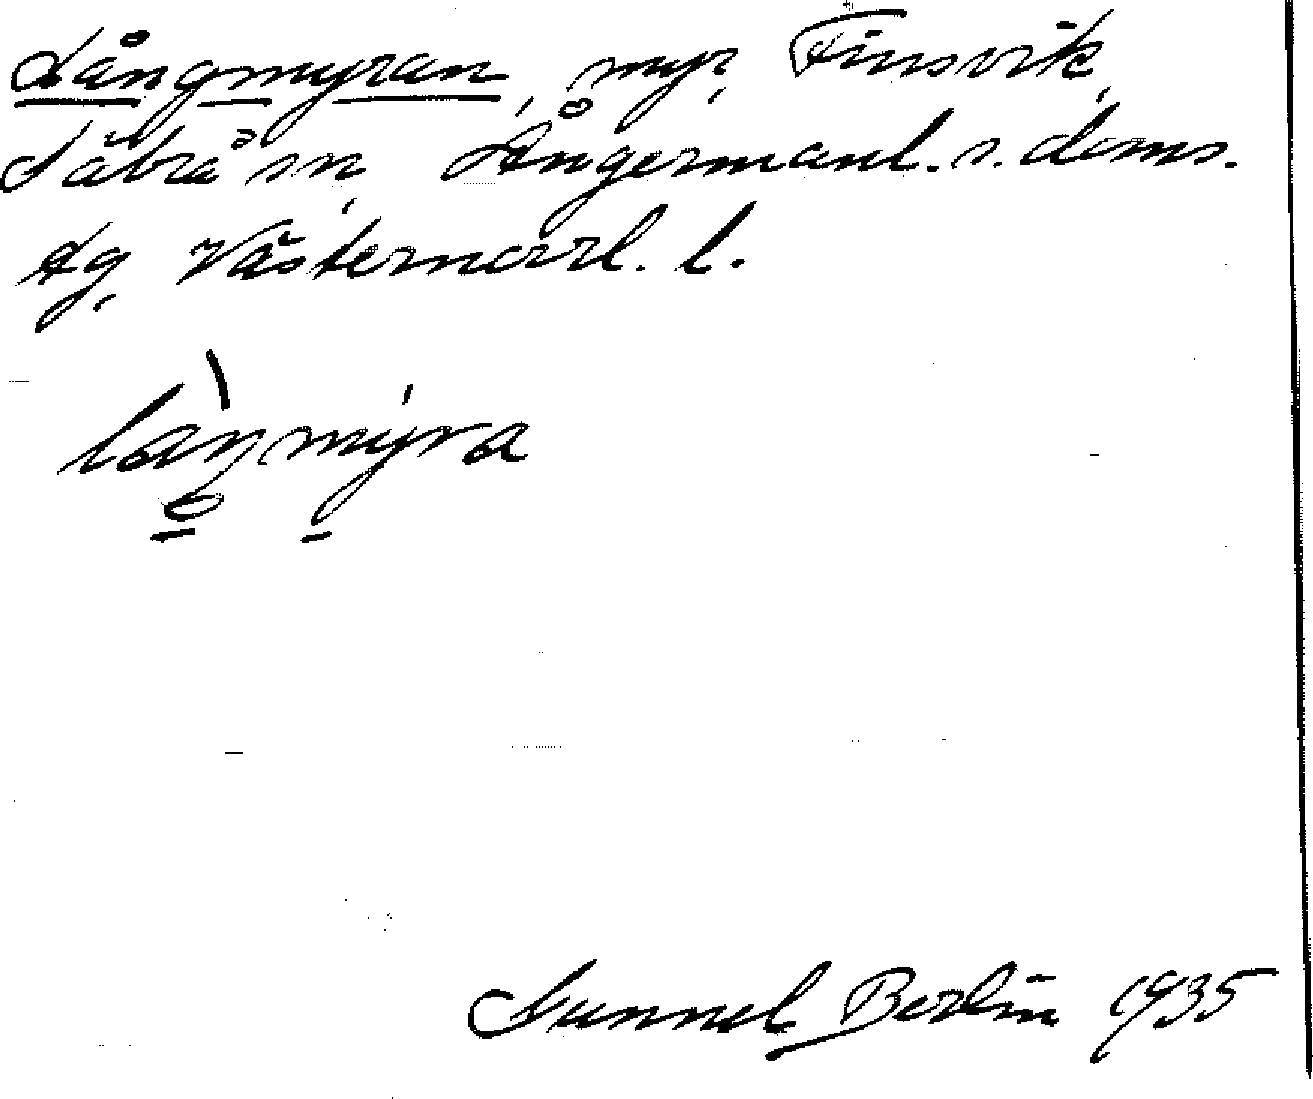 Långmyran, myr, Finsvik,
Säbrå sn, Ångermanl. s. doms.
tg, Västernorrl. l.
Gunnel Berlin 1935